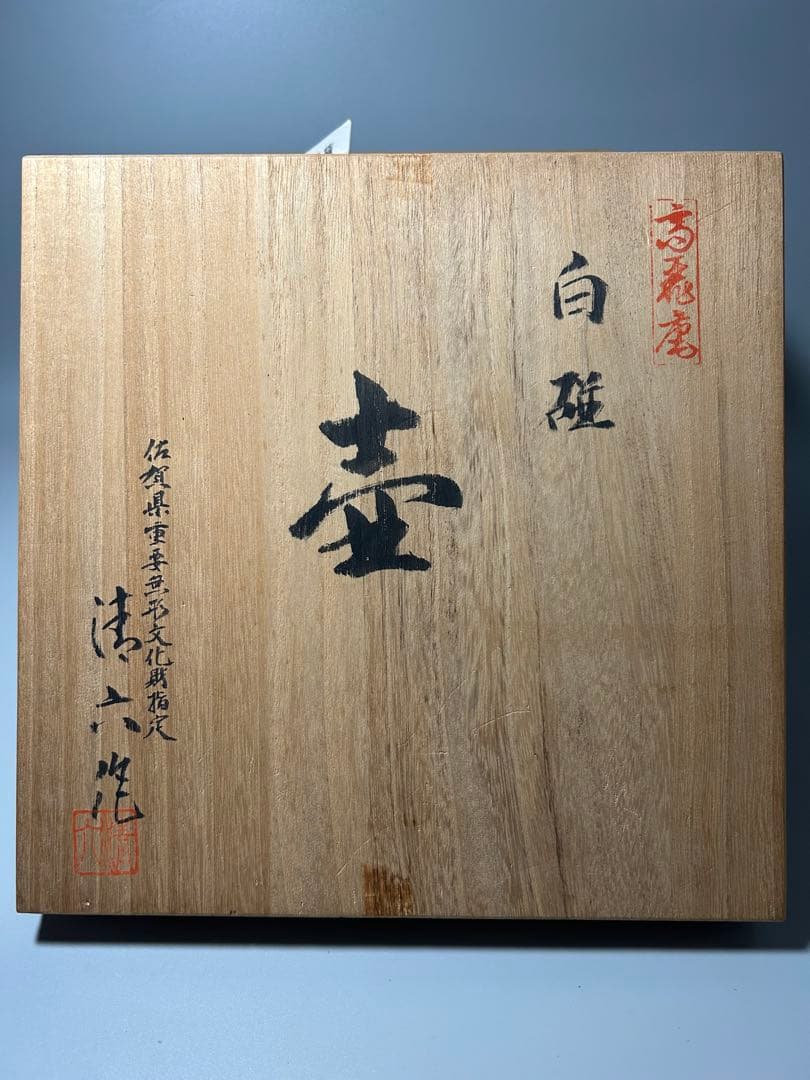 高麗庵
白磁
壷
佐賀県重要無形文化財指定
清六作
清六